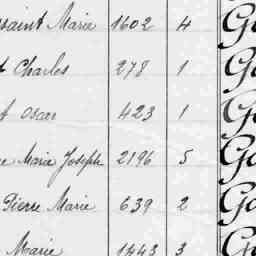 ssaint Marie 1602 4 G
t Charles 278 1 G
t Oscar 423 1 G
e Marie Joseph 2196 5 Go
Pierre Marie 639 2 Go
Marie 1443 3 G